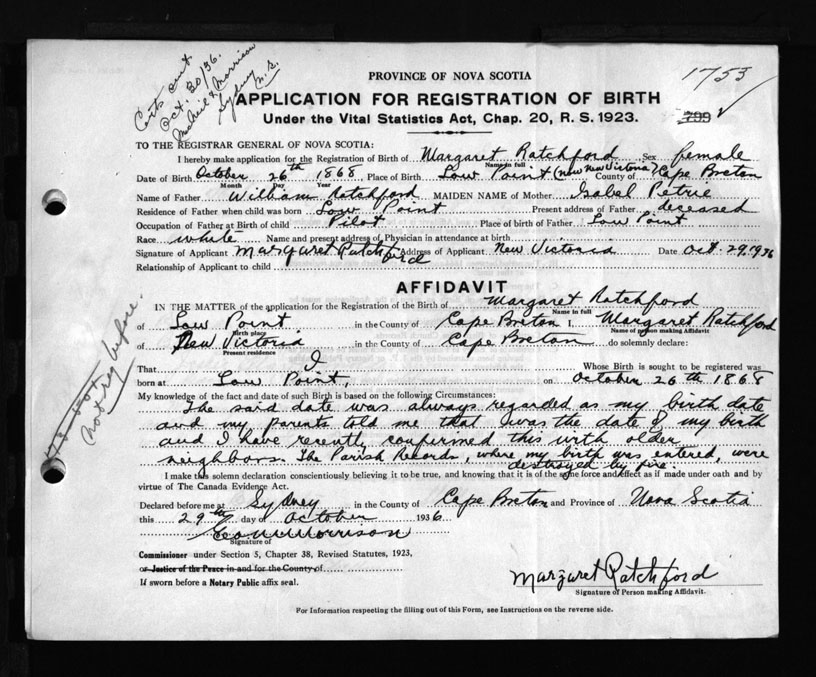 Certs sent
Oct. 30/36.
McNeil & Morrison
Sydney
N.S.
PROVINCE OF NOVA SCOTIA
1753
APPLICATION FOR REGISTRATION OF BIRTH
799 ✓
Under the Vital Statistics Act, Chap. 20, R. S. 1923.
TO THE REGISTRAR GENERAL OF NOVA SCOTIA:
I hereby make application for the Registration of Birth of Margaret Ratchford Sex female
Name in full
Date of Birth October 26th 1868 Place of Birth Low Point (now New Victoria) County of Cape Breton
Month Day Year
Name of Father William Ratchford MAIDEN NAME of Mother Isabel Petrie
Residence of Father when child was born Low Point Present address of Father deceased
Occupation of Father at Birth of child Pilot Place of birth of Father Low Point
Race white Name and present address of Physician in attendance at birth
Signature of Applicant Margaret Ratchford Address of Applicant New Victoria Date Oct. 29. 1936
Relationship of Applicant to child
AFFIDAVIT
IN THE MATTER of the application for the Registration of the Birth of Margaret Ratchford
Name in full
of Low Point in the County of Cape Breton I, Margaret Ratchford
Birth place Name of person making Affidavit
of New Victoria in the County of Cape Breton do solemnly declare:
Present residence
That I Whose Birth is sought to be registered was
born at Low Point, on October 26th 1868
My knowledge of the fact and date of such Birth is based on the following Circumstances:
The said date was always regarded as my birth date
and my parents told me that was the date of my birth
and I have recently confirmed this with older
neighbors. The Parish Records, where my birth was entered, were
destroyed by fire.
I make this solemn declaration conscientiously believing it to be true, and knowing that it is of the same force and effect as if made under oath and by
virtue of The Canada Evidence Act.
Declared before me at Sydney in the County of Cape Breton and Province of Nova Scotia
this 29th day of October 1936
Morrison
Signature of
Commissioner under Section 5, Chapter 38, Revised Statutes, 1923,
or Justice of the Peace in and for the County of
If sworn before a Notary Public affix seal.
Margaret Ratchford
Signature of Person making Affidavit.
For Information respecting the filling out of this Form, see Instructions on the reverse side.
not reg before.